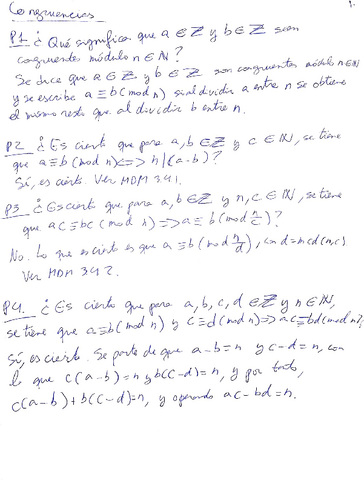 Congruencias
1.
P1. ¿Qué significa que a ∈ ℤ y b ∈ ℤ sean
congruentes módulo n ∈ ℕ?
Se dice que a ∈ ℤ y b ∈ ℤ son congruentes módulo n ∈ ℕ
y se escribe a ≡ b (mod n) si al dividir a entre n se obtiene
el mismo resto que al dividir b entre n.
P2. ¿Es cierto que para a, b ∈ ℤ y c ∈ ℕ, se tiene
que a ≡ b (mod n) <=> n | (a-b)?
Sí, es cierto. Ver MDM 341.
P3. ¿Es cierto que para a, b ∈ ℤ y n, c ∈ ℕ, se tiene
que ac ≡ bc (mod n) => a ≡ b (mod n/c)?
No. Lo que es cierto es que a ≡ b (mod n/d), con d = mcd(n,c).
Ver MDM 342.
P4. ¿Es cierto que para a, b, c, d ∈ ℤ y n ∈ ℕ,
se tiene que a ≡ b (mod n) y c ≡ d (mod n) => ac ≡ bd (mod n)?
Sí, es cierto. Se parte de que a-b = n y c-d = n, con
lo que c(a-b) = n y b(c-d) = n, y por tanto,
c(a-b) + b(c-d) = n, y operando ac - bd = n.